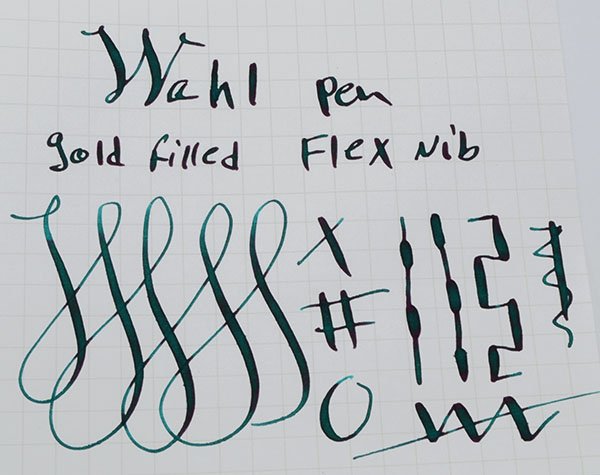 Wahl pen
gold filled Flex Nib
X
#
O